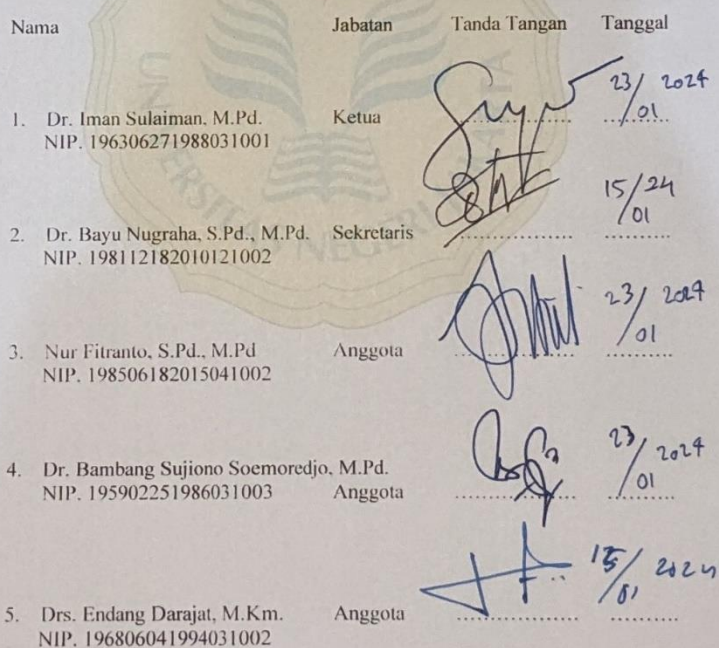 Nama Jabatan Tanda Tangan Tanggal
1. Dr. Iman Sulaiman, M.Pd. Ketua .................. 23/01 2024
NIP. 196306271988031001
2. Dr. Bayu Nugraha, S.Pd., M.Pd. Sekretaris .................. 15/01 24
NIP. 198112182010121002
3. Nur Fitranto, S.Pd., M.Pd Anggota .................. 23/01 2024
NIP. 198506182015041002
4. Dr. Bambang Sujiono Soemoredjo, M.Pd.
NIP. 195902251986031003 Anggota .................. 23/01 2024
5. Drs. Endang Darajat, M.Km. Anggota .................. 15/01 2024
NIP. 196806041994031002